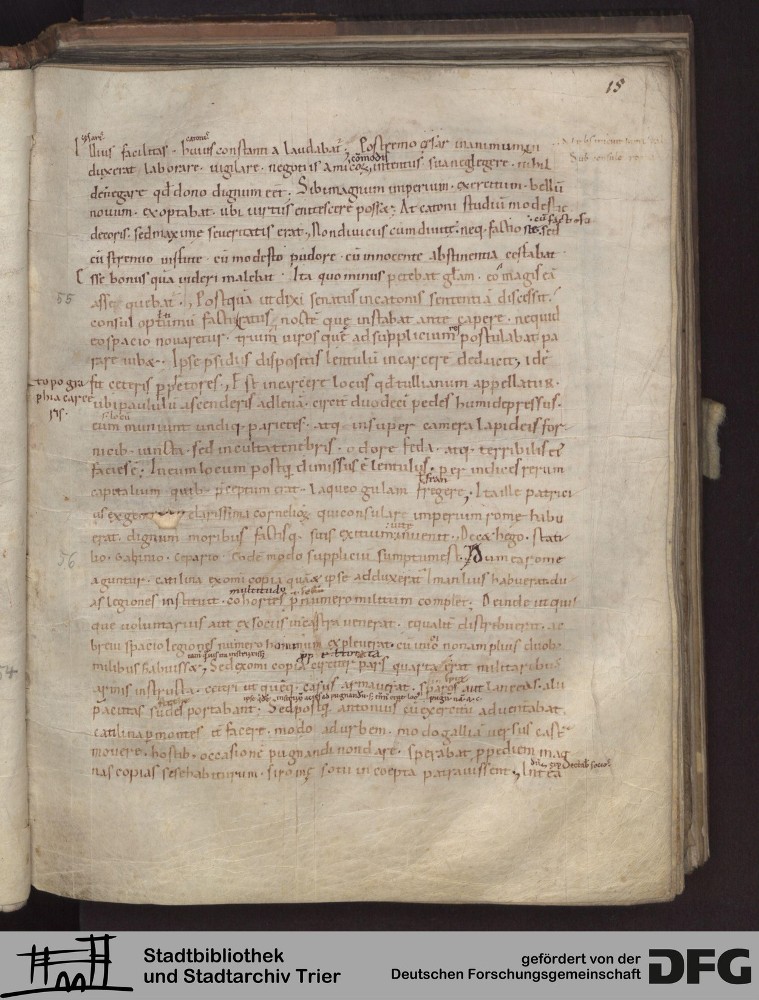 15
Illius facilitas. huius constantia laudabat̄. Postremo cęsar inanimum in
duxerat laborare. uigilare. negotiis amicoꝝ intentus sua neglegere. nihil
denegare qd̄ dono dignum eēt. Sibi magnum imperium. exercitum. bellū
nouum. exoptabat. ubi uirtus enitescere posset; At catoni studiū modestię
decoris. sed maxime seueritatis erat. Non diuiciis cum diuite. neq. factione
cū strenuo uirtute. cū modesto pudore. cū innocente abstinentia certabat
Esse bonus quā uideri malebat. Ita quo minus petebat glām. eo magis eā
55
asseq̄ quebat̄. Postquā ut dixi senatus in catonis sententiā discessit.
consul optimū factū ratus noctē quę instabat ante capere. nequid
eo spacio nouaretur. trium uiros quę ad supplicium postulabat pa
rare iubet. Ipse p̄sidiis dispositis lentulū in carcerē deducit, idē
fit ceteris p̄ p̄tores; Est in carcere locus qd̄ tullianum appellatur.
topogra
phia carce
ris.
ubi paululū ascenderis ad leuā. circit̄ duodecī pedes humi depressus.
eum muniunt undiq. parietes. atq. insuper camera lapideis for
nicib. uincta. sed inculta tenebris. odore feda. atq. terribilis eī
facies ē. In eum locum postq̄ dimissus ē lentulus. per indices rerum
capitalium quib. p̄ceptum erat. laqueo gulam fregere, Ita ille patrici
us ex gente clarissima cornelioꝝ qui consulare imperium rome habu
erat. dignum moribus factisq. suis exitium inuenit. De cethego. stati
56
lio. gabinio. cepario. eodē modo suppliciū sumptum est. Dum ea rome
aguntur. catilina ex omi copia quā et ipse adduxerat manlius habuerat du
as legiones instituit. cohortes p̄ numero militum complet. Deinde ut quis
que uoluntarius aut ex sociis in castra uenerat. equalit̄ distribuerat. ac
breui spacio legiones numero hominum expleuerat. cū initio non amplius duob.
milibus habuisset, Sed ex omi copia circiter pars quarta erat militaribus
armis instructa. ceteri ut quęq. casus armauerat. sparos aut lanceas. alii
pacutas sudes portabant. Sed postq̄ antonius cū exercitu aduentabat.
catilina p̄ montes it̄ facere. modo ad urbem. modo galliā uersus castr̄
mouere. hostib. occasionē pugnandi non dare. sperabat p̄pediem mag
nas copias sese habiturum. si romę socii incoepta patrauissent, Interea
Stadtbibliothek
und Stadtarchiv Trier
gefördert von der
Deutschen Forschungsgemeinschaft
DFG